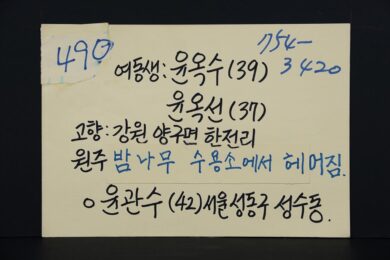 490
754-
여동생: 윤옥수 (39) 3420
윤옥선 (37)
고향: 강원 양구면 한전리
원주 밤나무 수용소에서 헤어짐.
○ 윤관수 (42) 서울 성동구 성수동.